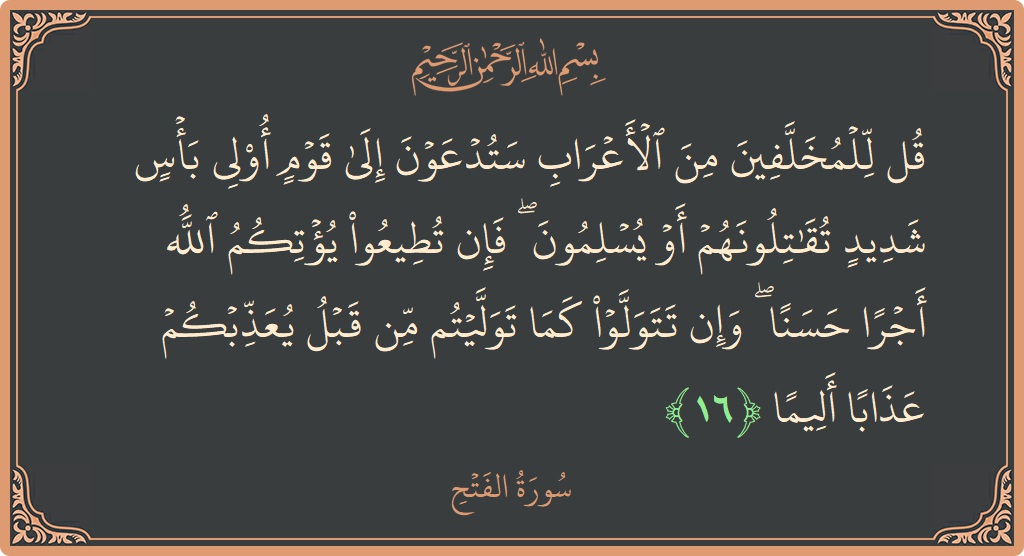 بِسْمِ اللَّهِ الرَّحْمَٰنِ الرَّحِيمِ
قُل لِّلْمُخَلَّفِينَ مِنَ ٱلْأَعْرَابِ سَتُدْعَوْنَ إِلَىٰ قَوْمٍ أُوْلِى بَأْسٍ
شَدِيدٍ تُقَٰتِلُونَهُمْ أَوْ يُسْلِمُونَ ۖ فَإِن تُطِيعُوا۟ يُؤْتِكُمُ ٱللَّهُ
أَجْرًا حَسَنًا ۖ وَإِن تَتَوَلَّوْا۟ كَمَا تَوَلَّيْتُم مِّن قَبْلُ يُعَذِّبْكُمْ
عَذَابًا أَلِيمًا ﴿١٦﴾
سُورَةُ الفَتْحِ